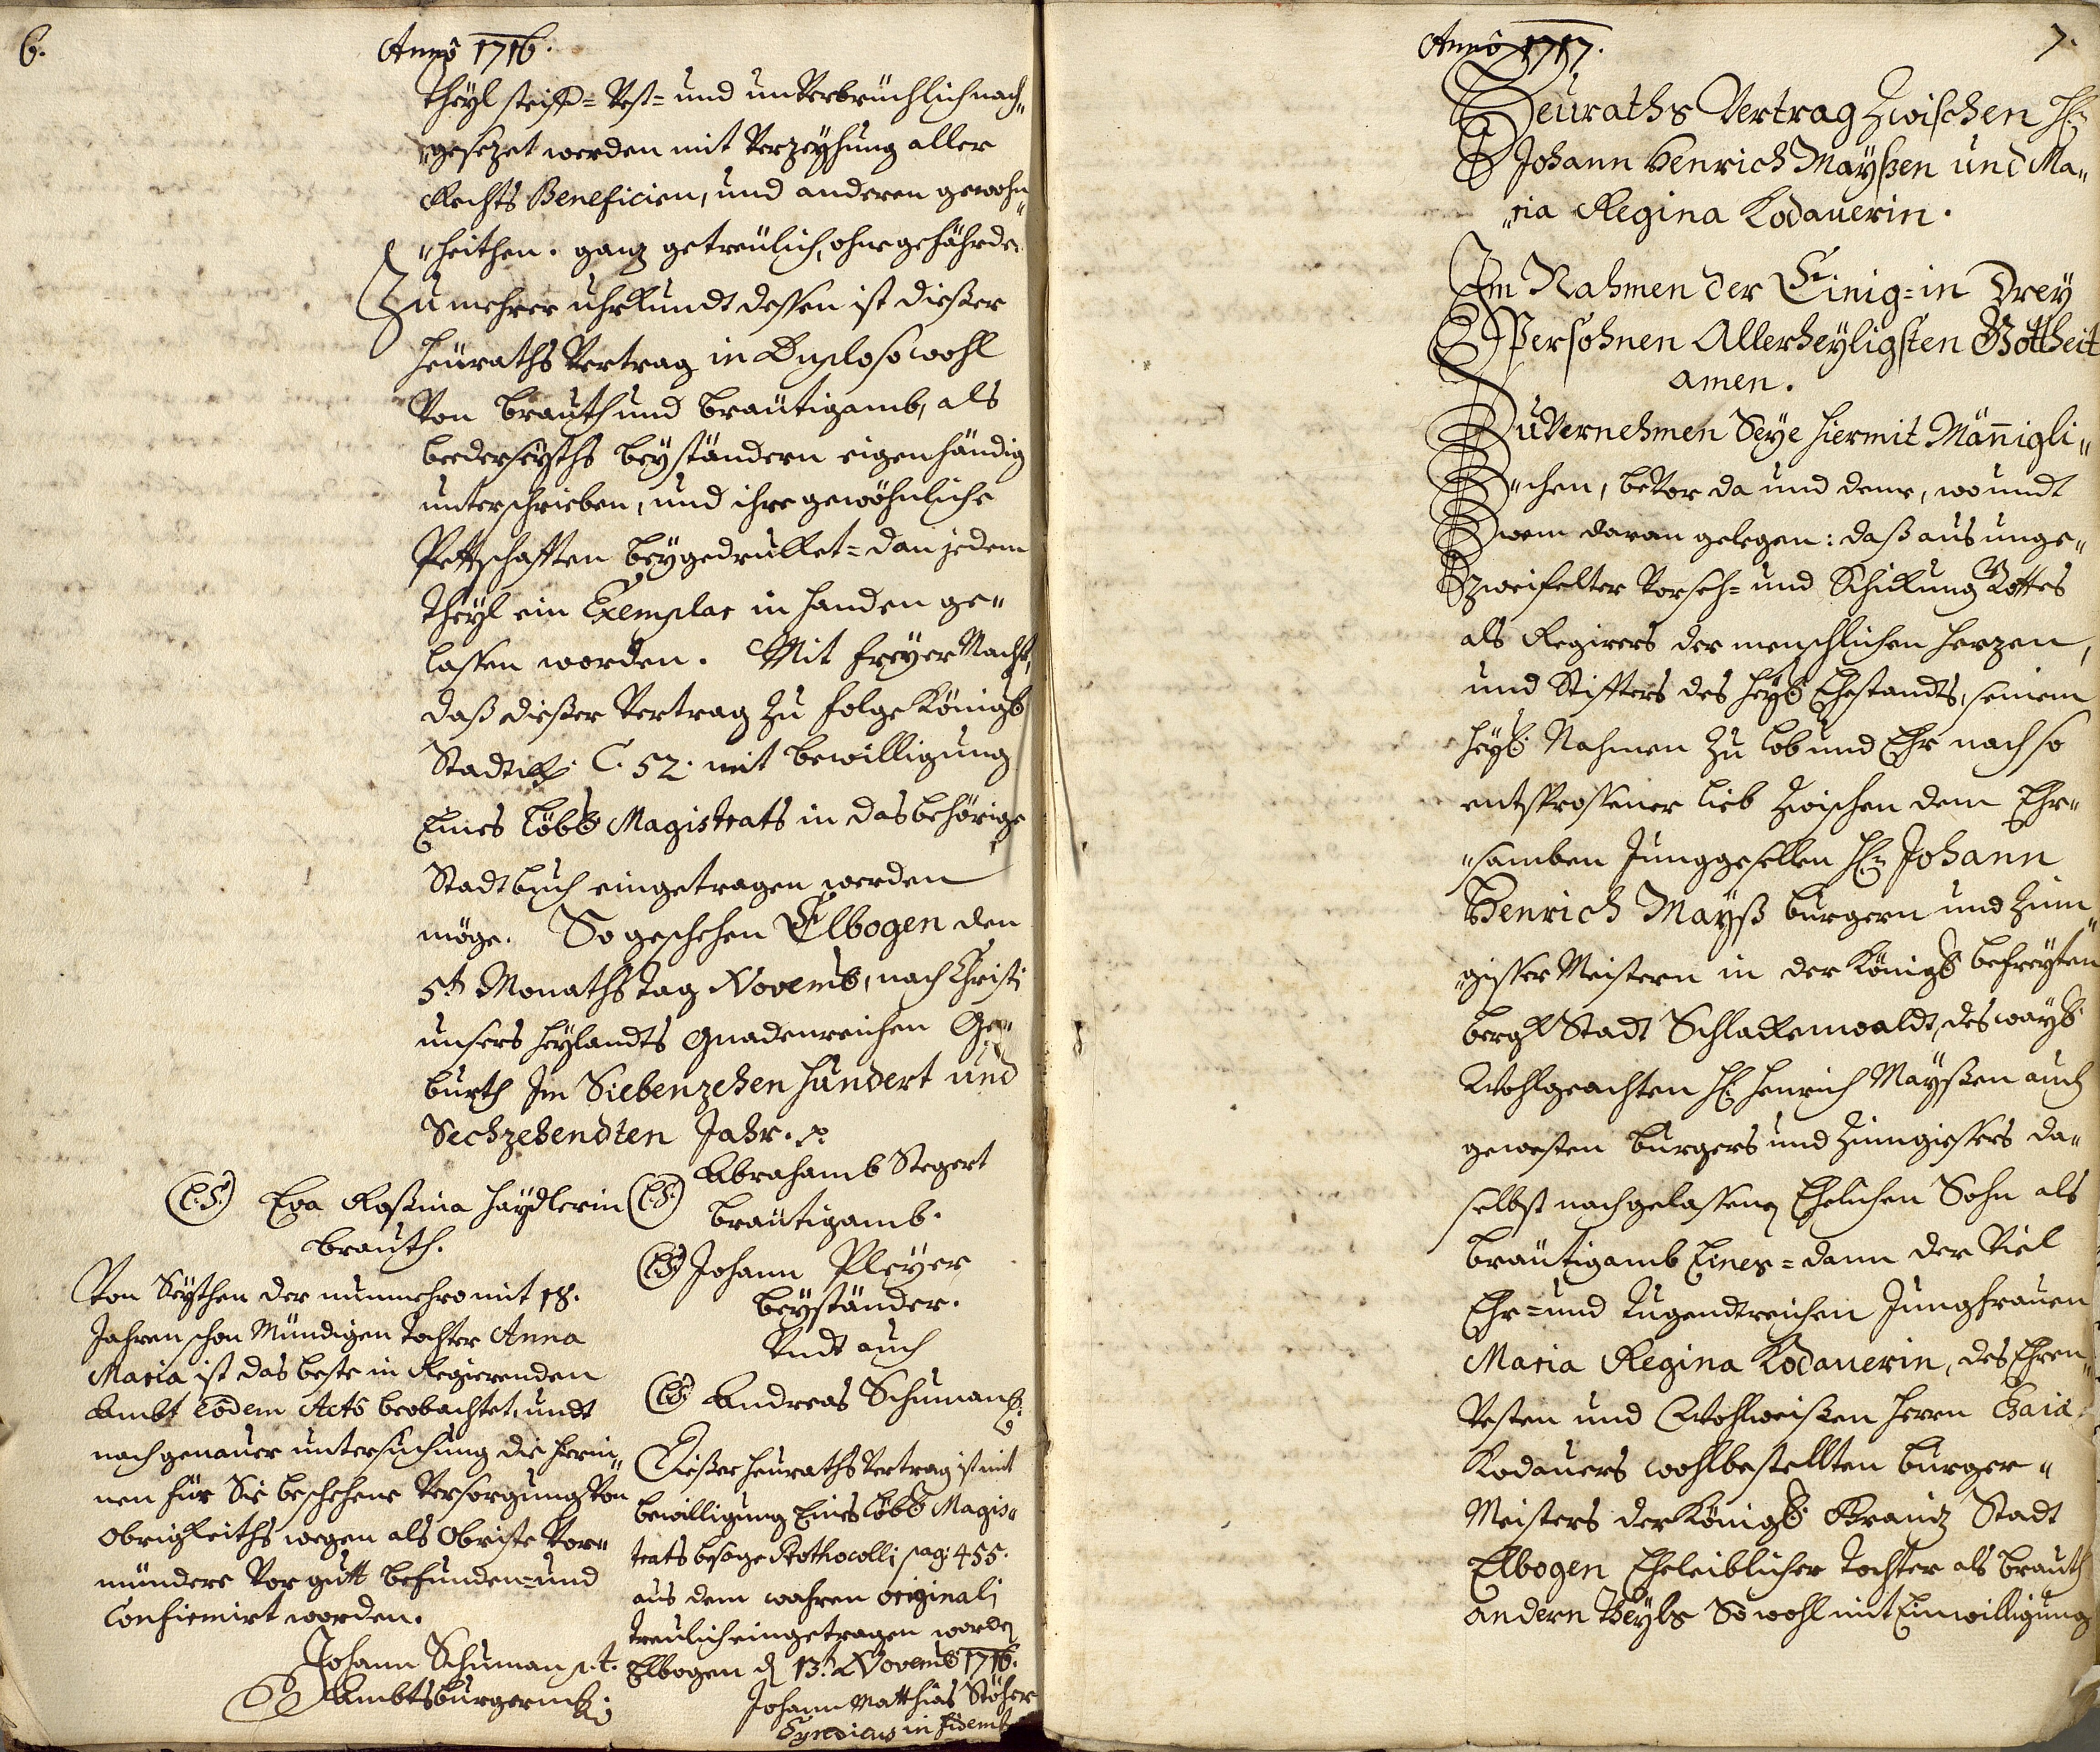 6.
Anno 1716.
Theÿl steiff- Vest- und unVerbrüchlich nach„
„gesezet werden mit Verzeÿhung aller
Rechts Beneficien, und anderen gewohn„
„heithen. ganz getreülich, ohne gefährde.
Zu mehrer uhrkundt dessen ist dießer
Heüraths Vertrag in Duplo sowohl
Von Brauth und Bräutigamb, als
beederseÿths beÿständern eigenhändig
unterschrieben, und ihre gewöhnliche
Pettschafften beÿgedrukket- dan jedem
Theÿl ein Exemplar in handen ge„
lassen worden. Mit freÿer Macht,
daß dießer Vertrag zu folge Königl.
Stadtr. C. 52. mit bewilligung
Eines Löbl. Magistrats in das behörige
Stadtbuch eingetragen werden
möge. So geschehen Elbogen den
5t. Monaths tag Novemb. nach Christi
unsers heÿlandts gnadenreichen Ge„
burth Im Siebenzehen hundert und
Sechzehendten Jahr. p.
(L.S.) Eva Rosina Haÿdlerin
Brauth.
(L.S.) Abrahamb Stegert
Bräutigamb.
(L.S.) Johann Pleÿer
beÿständer.
Undt auch
(L.S.) Andreas Schuman
Von Seÿthen der nunmehro mit 18.
Jahren schon Mündigen Tochter Anna
Maria ist das beste in Regierenden
Ambt eodem Acto beobachtet, undt
nach genauer untersuchung die hierin„
nen für Sie beschehene Versorgung Von
Obrigkeiths wegen als Obriste Vor„
mündere Vor gutt befunden- und
Confirmirt worden.
Johann Schuman p.t.
Ambtsburgerm.
Dießer heüraths Vertrag ist mit
bewilligung Eines Löbl. Magis„
trats besage Prothocolli pag: 455.
aus dem wahren originali
treulich eingetragen worden
Elbogen d. 13. Novemb. 1716.
Johann Matthias Stöhr
Syndicus in fidem
7.
Anno 1717.
Heuraths Vertrag zwischen H.
Johann Henrich Maÿßen und Ma„
„ria Regina Kodauerin.
Im Nahmen der Einig- in Dreÿ
Persohnen Allerheÿligsten Gottheit
amen.
Zu Vernehmen Seÿe hiermit Mäñigli„
„chen, beVor da und dene, wo undt
wem daran gelegen: daß aus unge„
zweifelter Vorseh- und Schikung Gottes
als Regirers der menschlichen herzen,
und Stiffters des heÿl. Ehestandts, seinem
heÿl. Nahmen zu lob und Ehr nach so
entsprossener lieb zwischen dem Ehr„
„samben Junggesellen H. Johann
Henrich Maÿß burgern und Zinn„
„giesser Meistern in der Königl. befreÿten
berg Stadt Schlackenwaldt, des waÿl.
Wohlgeachten H. Henrich Maÿßen auch
gewesten burgers und Zinngiessers da„
selbst nachgelassenen Ehelichen Sohn als
Bräutigamb Eines- dann der Viel
Ehr- und Tugendtreichen Jungfrauen
Maria Regina Kodauerin, des Ehren„
Vesten und Wohlweißen herrn
Kodauers wohlbestellten burger„
Meisters der Königl. Kraiß Stadt
Elbogen Eheleiblicher Tochter als brauth
andern Theÿls So wohl mit Einwilligung